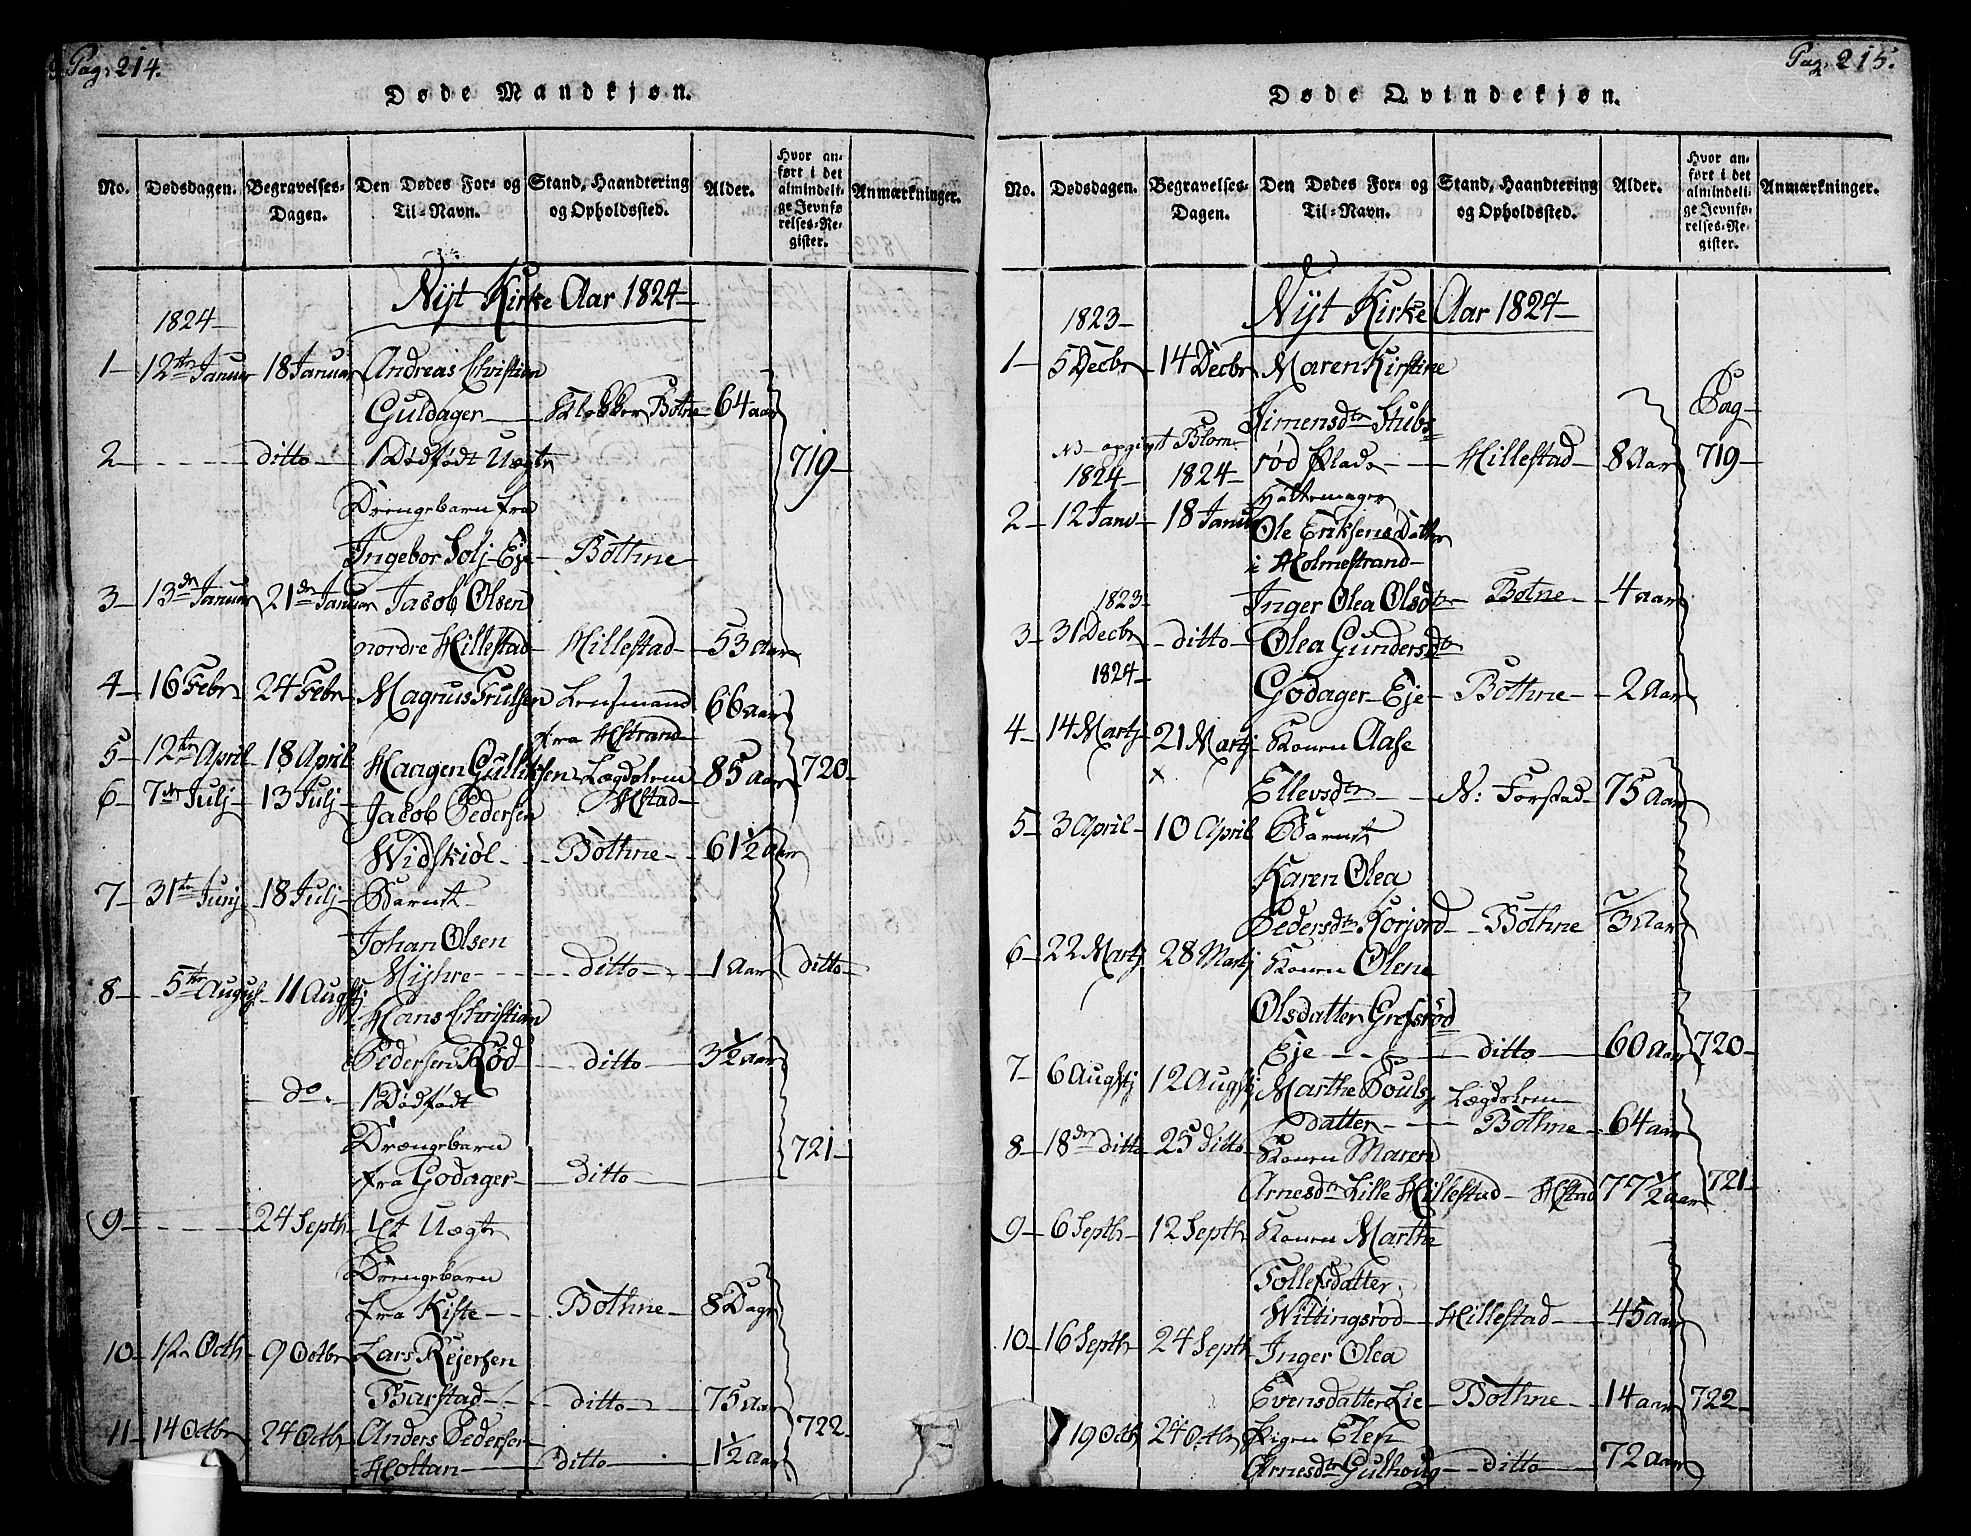 Pag: 214.
Døde Mandkjøn.
No. Dødsdagen. Begravelses-Dagen. Den Dødes For- og Til-Navn. Stand, Haandtering og Opholdssted. Alder. Hvor anført i det almindelige Jevnførelses-Register. Anmærkninger.
Nyt Kirke Aar 1824
1824
1 12te Januar 18 Januar Andreas Christian
Guldager Klokker Botne 64 aar
2 ditto 1 Dødfødt Uægte 719
Drengebarn fra
Ingebor Solj Eje Bothne
3 13de Januar 21de Januar Jacob Olsen
nordre Hillestad Hillestad 53 Aar
4 16 Febr 24 Febr Magnus Trulsen Lensmand 66 aar
fra Hstrand
5 12te April 18 April Haagen Gulliksen Lægdslem 85 Aar 720
Hstad
6 7de Julj 13 Julj Jacob Pedersen
Widskiøl Bothne 61 1/2 aar
7 31te Junj 18 Julj Barnet
Johan Olsen
Myhre ditto 1 Aar ditto
8 5te August 11 Augstj Hans Christian
Pedersen Rød ditto 3 1/2 aar
do. 1 Dødfødt
Drængebarn 721
fra Godager ditto
9 24 Septbr Et Uægte
Drengebarn
fra Kiste Bothne 8 Dage
10 Octb 9 Octbr Lars Rejersen
Barstad ditto 75 aar
11 14 Octbr 24 Octbr Anders Pedersen 722
Holtan ditto 1 1/2 Aar
Pag. 215.
Døde Qvindekjøn.
No. Dødsdagen. Begravelses-Dagen. Den Dødes For- og Til-Navn. Stand, Haandtering og Opholdssted. Alder. Hvor anført i det almindelige Jevnførelses-Register. Anmærkninger.
Nyt Kirke Aar 1824
1823
1 5 Decbr 14 Decbr Maren Kirstine
Simensdtr Stubs- Pag
rød Plads Hillestad 8 Aar 719
1824 1824
2 12 Janv 18 Januar Hattemager
Ole Eriksens Datter
i Holmestrand
Inger Olea Olsdtr Botne 4 aar
1823
3 31 Decbr ditto Olea Gundersdtr
1824
Godager Eje Bothne 2 Aar
4 14 Martj 21 Martj Konen Aase
Ellevsdtr N: Forstad 75 Aar
5 3 April 10 April Barnet
Karen Olea
Pedersdtr Korjord Bothne Aar
6 22 Martj 28 Martj Konen Olene
Olsdatter Grefsrød
Eje ditto 60 Aar 720
7 6 Augstj 12 Augstj Marthe Pouls- Lægdslem
datter Bothne 64 aar
8 18de ditto 25 Ditto Konen Maren
Arnesdtr Lille Hillestad Hstad 77 1/2 aar 721
9 6 Septbr 12 Septbr Konen Marthe
Tollefsdatter
Wittingsrød Hillestad 45 aar
10 16 Septbr 24 Septb Inger Olea
Evensdatter Lie Bothne 14 aar 722
19 Octb 24 Octbr Pigen Elen
Arnesdtr Gulhoug ditto 72 Aar